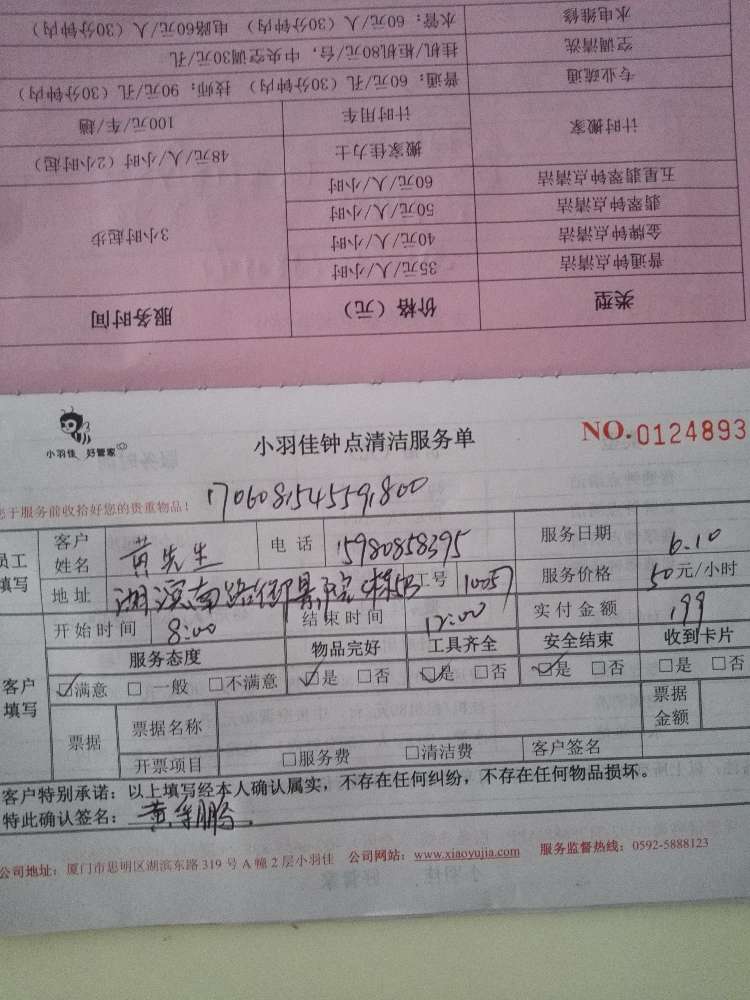 类型 价格（元） 服务时间
普通钟点清洁 35元/人/小时 3小时起步
金牌钟点清洁 40元/人/小时
翡翠钟点清洁 50元/人/小时
五星翡翠钟点清洁 60元/人/小时
计时搬家 搬家佳力士 48元/人/小时（2小时起）
计时用车 100元/车/趟
专业疏通 普通：60元/孔（30分钟内） 技师：90元/孔（30分钟内）
空调清洗 挂机/柜机80元/台，中央空调30元/孔
水电维修 水管：60元/人（30分钟内） 电路60元/人（30分钟内）
小羽佳 好管家
小羽佳钟点清洁服务单
NO.0124893
于服务前收拾好您的贵重物品！
170608154559,800
员工填写 客户姓名 黄先生 电话 15980858395 服务日期 6.10
地址 湖滨南路御景 工号 服务价格 50元/小时
开始时间 8:00 结束时间 12:00 实付金额 199
客户填写 服务态度 物品完好 工具齐全 安全结束 收到卡片
☑满意 □一般 □不满意 ☑是 □否 ☑是 □否 ☑是 □否 □是 □否
票据 票据名称 票据金额
开票项目 □服务费 □清洁费 客户签名
客户特别承诺：以上填写经本人确认属实，不存在任何纠纷，不存在任何物品损坏。
特此确认签名：黄 鹏
公司地址：厦门市思明区湖滨东路319号A幢2层小羽佳 公司网站：www.xiaoyujia.com 服务监督热线：0592-5888123